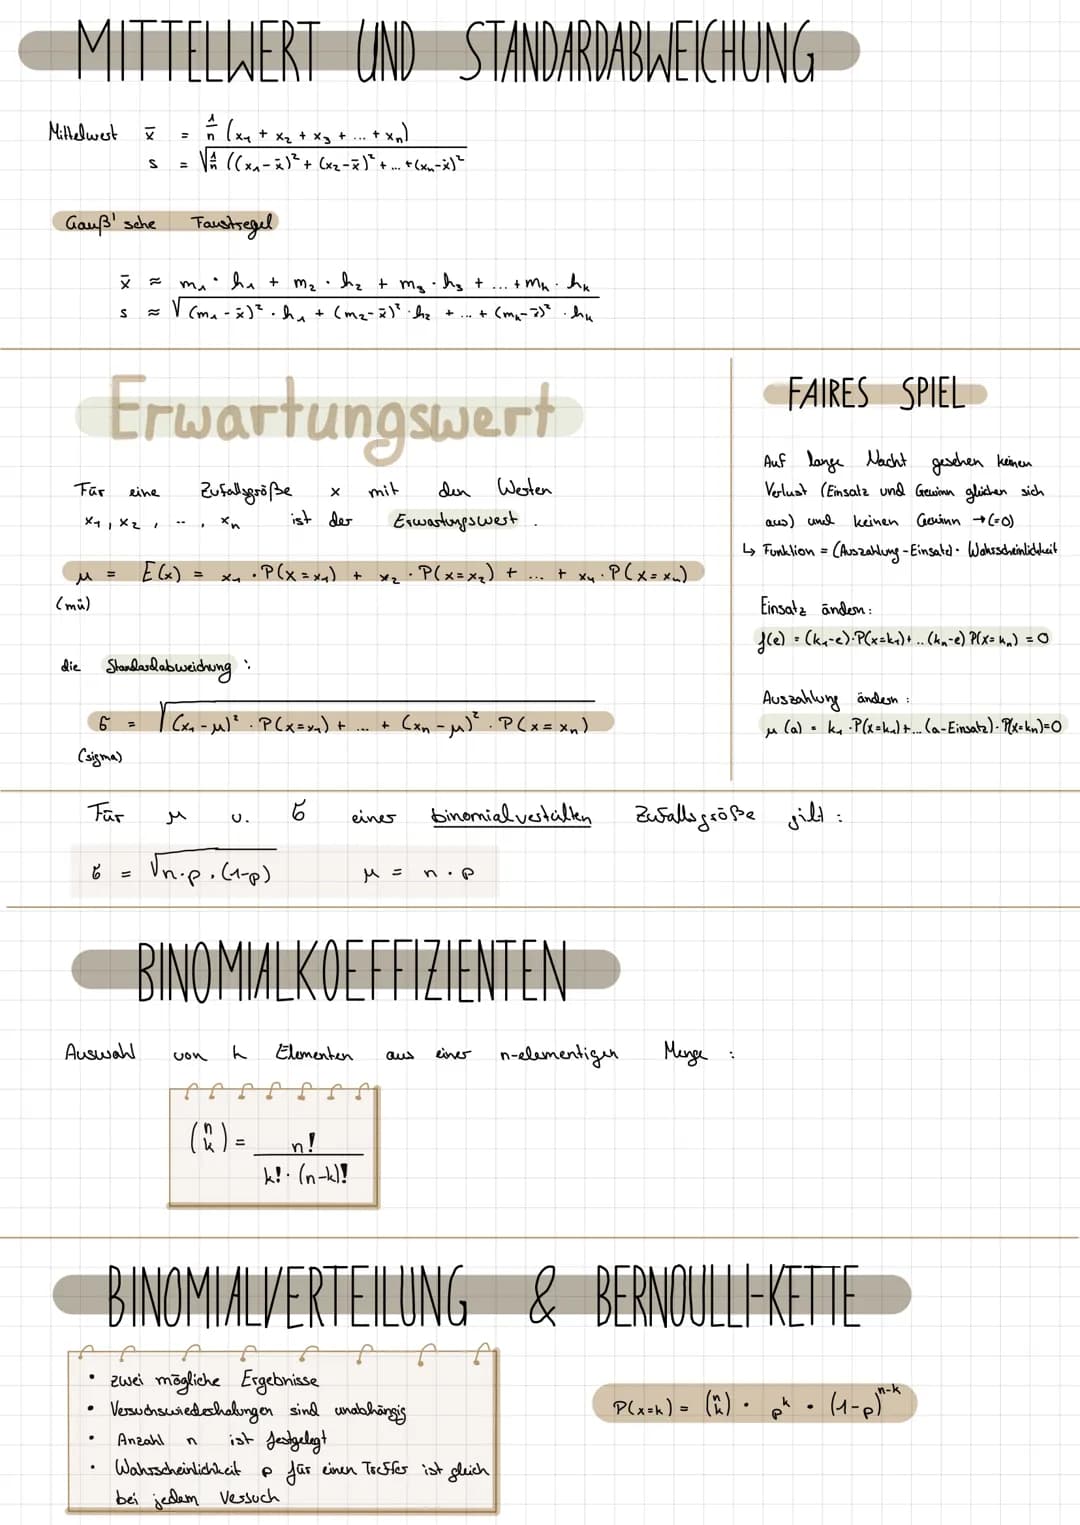 MITTELWERT UND STANDARDABWEICHUNG
Mittelwert x̄ = 1/n (x₁ + x₂ + x₃ + ... + xₙ)
s = √(1/n ((x₁-x̄)² + (x₂-x̄)² + ... + (xₙ-x̄)²
Gauß'sche Faustregel
x̄ ≈ m₁ · h₁ + m₂ · h₂ + m₃ · h₃ + ... + mₖ · hₖ
s ≈ √(m₁-x̄)² · h₁ + (m₂-x̄)² · h₂ + ... + (mₖ-x̄)² · hₖ
Erwartungswert
Für eine Zufallsgröße x mit den Werten
x₁, x₂, ..., xₙ ist der Erwartungswert.
μ = E(x) = x₁ · P(x=x₁) + x₂ · P(x=x₂) + ... + xₙ · P(x=xₙ)
(mü)
die Standardabweichung:
σ = √(x₁-μ)² · P(x=x₁) + ... + (xₙ-μ)² · P(x=xₙ)
(sigma)
FAIRES SPIEL
Auf lange Nacht gesehen keinen
Verlust (Einsatz und Gewinn gleichen sich
aus) und keinen Gewinn →(=0)
↳ Funktion = (Auszahlung-Einsatz) · Wahrscheinlichkeit
Einsatz ändern:
f(e) = (k₁-e)·P(x=k₁)+..(kₙ-e) P(x=kₙ) = 0
Auszahlung ändern:
μ(a) = k₁ ·P(x=k₁)+...(a-Einsatz)·P(x=kₙ)=0
Für μ u. σ einer binomialverteilten Zufallsgröße gilt:
σ = √n·p·(1-p) μ = n·p
BINOMIALKOEFFIZIENTEN
Auswahl von k Elementen aus einer n-elementigen Menge:
(n k) = n!
k! · (n-k)!
BINOMIALVERTEILUNG & BERNOULLI-KETTE
• zwei mögliche Ergebnisse
• Versuchswiederholungen sind unabhängig
• Anzahl n ist festgelegt
• Wahrscheinlichkeit p für einen Treffer ist gleich
bei jedem Versuch
P(x=k) = (n k) · pᵏ · (1-p)ⁿ⁻ᵏ